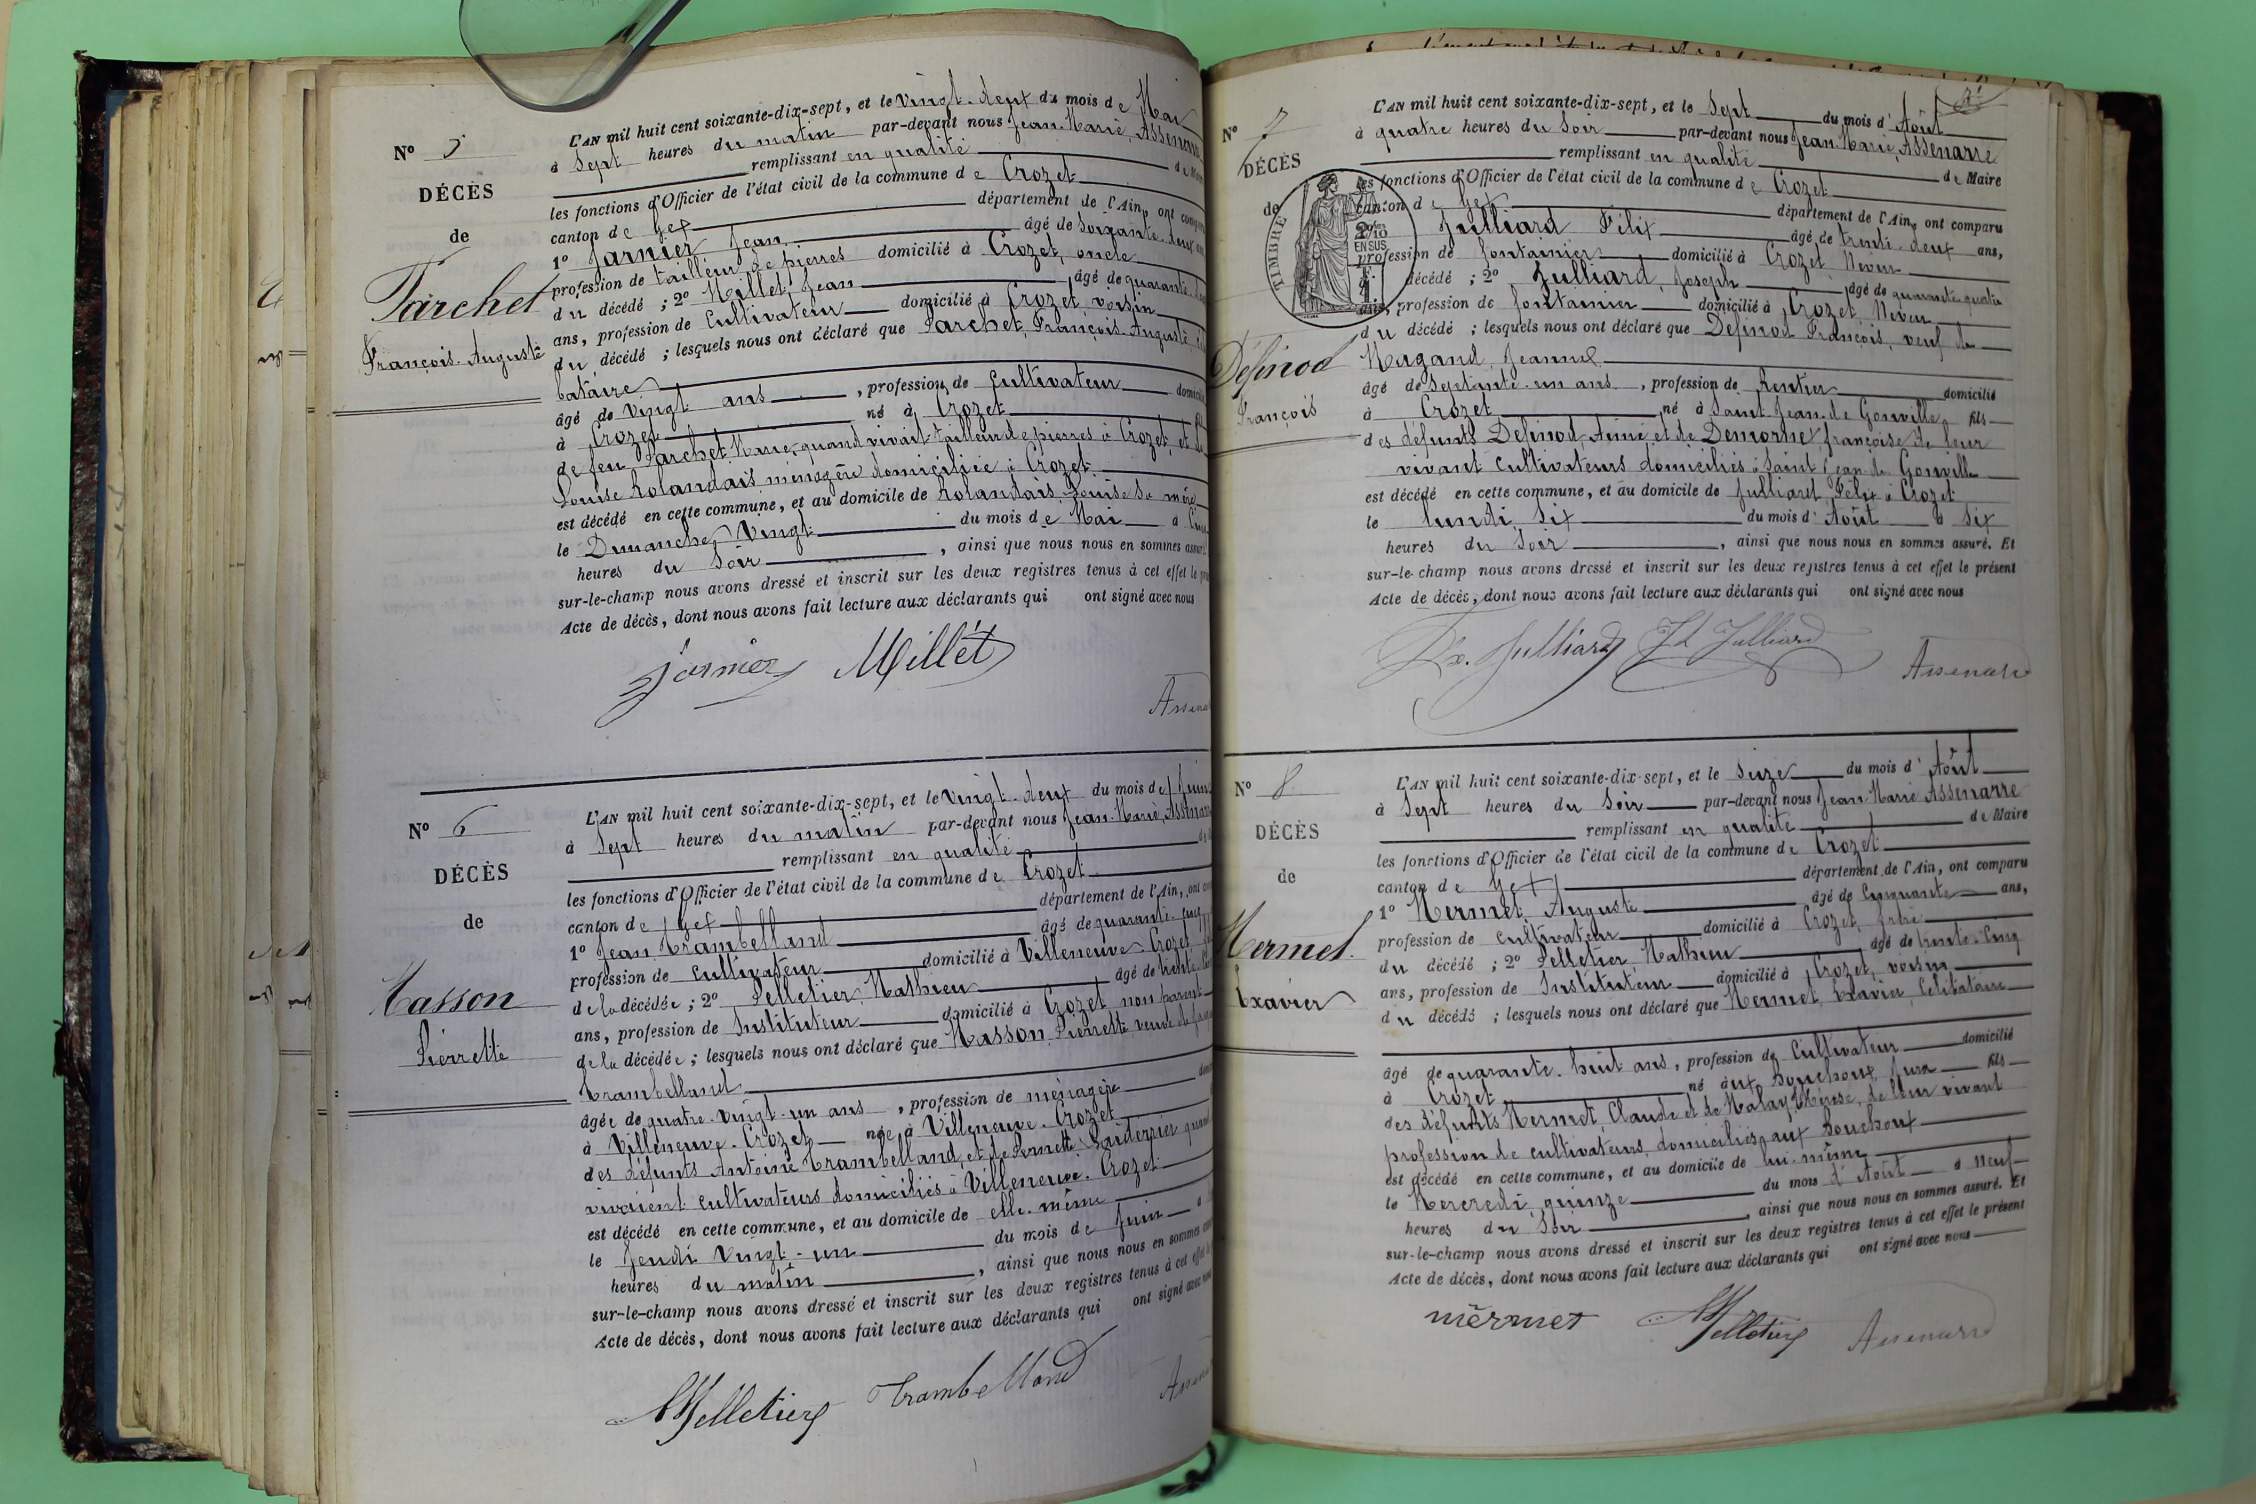 N° 5
DÉCÈS
de
Parchet
François-Auguste
L'AN mil huit cent soixante-dix-sept, et le vingt-deux du mois de Mai
à Sept heures du matin par-devant nous Jean-Marie, Assenarre
remplissant en qualité de Maire
les fonctions d'Officier de l'état civil de la commune de Crozet
canton de Gex département de l'Ain, ont comparu
1° Jarnier Jean âgé de soixante-deux ans
profession de tailleur de pierres domicilié à Crozet, oncle
du décédé ; 2° Millet Jean âgé de quarante
ans, profession de Cultivateur domicilié à Crozet, voisin
du décédé ; lesquels nous ont déclaré que Parchet, François-Auguste, céli
bataire
âgé de vingt ans, profession de cultivateur domicilié
à Crozet né à Crozet
de feu Parchet Marie, quand vivait tailleur de pierres à Crozet, et de
Louise Rolandais ménagère domiciliée à Crozet
est décédé en cette commune, et au domicile de Rolandais Louise sa mère
le Dimanche, Vingt du mois de Mai à
heures du Soir, ainsi que nous nous en sommes assuré
sur-le-champ nous avons dressé et inscrit sur les deux registres tenus à cet effet le
Acte de décès, dont nous avons fait lecture aux déclarants qui ont signé avec nous
Jarnier Millét
N° 6
DÉCÈS
de
Masson
Pierrette
L'AN mil huit cent soixante-dix-sept, et le vingt-deux du mois de Juin
à Sept heures du matin par-devant nous Jean-Marie, Assenarre
remplissant en qualité
les fonctions d'Officier de l'état civil de la commune de Crozet
canton de Gex département de l'Ain, ont
1° Jean Trambelland âgé de quarante-cinq
profession de cultivateur domicilié à Villeneuve-Crozet
de la décédée ; 2° Pelletier, Mathieu âgé de trente
ans, profession de Instituteur domicilié à Crozet non parent
de la décédée ; lesquels nous ont déclaré que Masson Pierrette veuve de
Trambelland
âgée de quatre-vingt-un ans, profession de ménagère
à Villeneuve-Crozet née à Villeneuve-Crozet
des défunts Antoine Trambelland et de Pernette quand
vivaient cultivateurs domiciliés à Villeneuve-Crozet
est décédé en cette commune, et au domicile de elle-même
le Jeudi Vingt-un du mois de Juin à
heures du matin, ainsi que nous nous en sommes
sur-le-champ nous avons dressé et inscrit sur les deux registres tenus à cet effet
Acte de décès, dont nous avons fait lecture aux déclarants qui ont signé avec nous
Pelletier Trambelland
N° 7
DÉCÈS
de
Définod
François
TIMBRE
2/10
EN SUS
L'AN mil huit cent soixante-dix-sept, et le Sept du mois d'Août
à quatre heures du Soir par-devant nous Jean-Marie, Assenarre
remplissant en qualité de Maire
les fonctions d'Officier de l'état civil de la commune de Crozet
canton de Gex département de l'Ain, ont comparu
Julliard Félix âgé de trente-deux ans,
profession de fontainier domicilié à Crozet, Neveu
décédé ; 2° Julliard, Joseph âgé de quarante-quatre
ans, profession de fontainier domicilié à Crozet Neveu
du décédé ; lesquels nous ont déclaré que Définod François, veuf de
Mugand, Jeanne
âgé de septante-un ans, profession de Rentier domicilié
à Crozet né à Saint-Jean-de-Gonville, fils
des défunts Définod, Aimé, et de Demornex françoise de leur
vivant cultivateurs domiciliés à Saint Jean-de-Gonville
est décédé en cette commune, et au domicile de Julliard, Félix à Crozet
le lundi, six du mois d'Août à six
heures du Soir, ainsi que nous nous en sommes assuré. Et
sur-le-champ nous avons dressé et inscrit sur les deux registres tenus à cet effet le présent
Acte de décès, dont nous avons fait lecture aux déclarants qui ont signé avec nous
Fx. Julliard Jh Julliard
Assenarre
N° 8
DÉCÈS
de
Mermet
Exavier
L'AN mil huit cent soixante-dix-sept, et le Seize du mois d'Août
à Sept heures du Soir par-devant nous Jean-Marie Assenarre
remplissant en qualité de Maire
les fonctions d'Officier de l'état civil de la commune de Crozet
canton de Gex département de l'Ain, ont comparu
1° Mermet, Auguste âgé de Cinquante ans,
profession de cultivateur domicilié à Crozet, frère
du décédé ; 2° Pelletier Mathieu âgé de trente-Cinq
ans, profession de Instituteur domicilié à Crozet, voisin
du décédé ; lesquels nous ont déclaré que Mermet, Exavier, Célibataire
âgé de quarante-huit ans, profession de cultivateur domicilié
à Crozet né aux Bouchoux Jura fils
des défunts Mermet, Claude et de Thérèse, de leur vivant
profession de cultivateurs, domiciliés aux Bouchoux
est décédé en cette commune, et au domicile de lui-même
le Mercredi, quinze du mois d'Août à neuf
heures du Soir, ainsi que nous nous en sommes assuré. Et
sur-le-champ nous avons dressé et inscrit sur les deux registres tenus à cet effet le présent
Acte de décès, dont nous avons fait lecture aux déclarants qui ont signé avec nous
mērmet Pelletier Assenarre